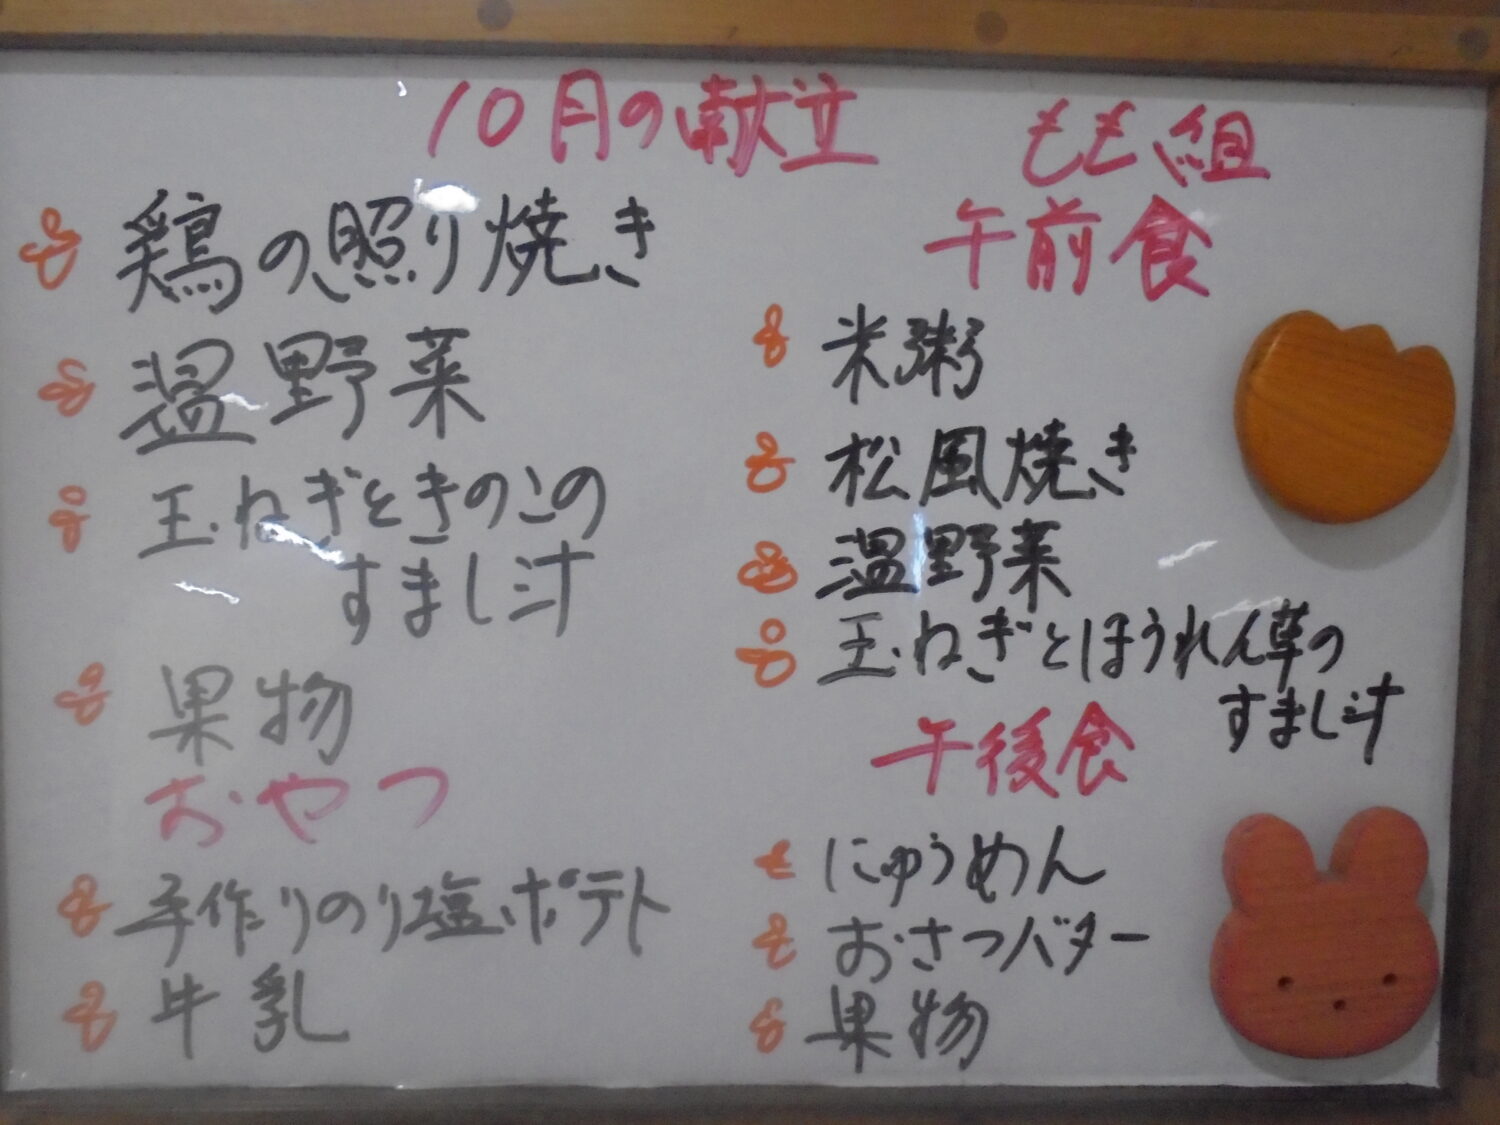 10月の献立
鶏の照り焼き
温野菜
玉ねぎときのこの
すまし汁
果物
おやつ
手作りのり塩ポテト
牛乳
もも組
午前食
米粥
松風焼き
温野菜
玉ねぎとほうれん草の
すまし汁
午後食
にゅうめん
おさつバター
果物